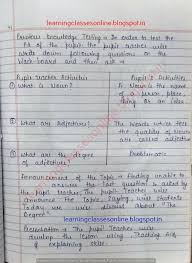 learningclassesonline.blogspot.in
Previous Knowledge Testing :- In order to test the
P.K of the pupil the pupil teacher will
write down following questions on the
black board and then ask :-
Pupil Teacher Activities Pupil's Activities
① What is Noun? A Noun is the name
of a person, place,
thing or an idea
② What are Adjectives? The words which tell
the quality of Noun
are called adjective
③ What are the degree Problematic
of adjective?
Announcement of the Topic :- Finding unable to
answer the last question asked by
the pupil teacher, The pupil Teacher will
announce the Topic Saying well students
Today we will discuss about "The
Degree"
Presentation :- The pupil Teacher will
develop the lesson using Teaching Aids
of explaining skill.
learningclassesonline.blogspot.in